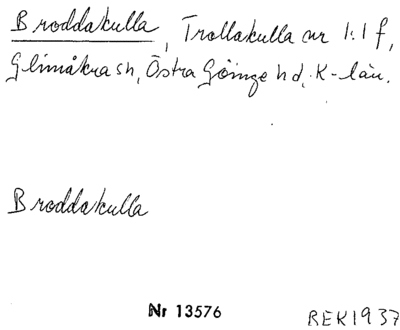 Broddakulla, Trollakulla nr 1:1 f,
Glimåkra sn, Östra Göinge hd, K-län.
Broddakulla
Nr 13576
BEK1937